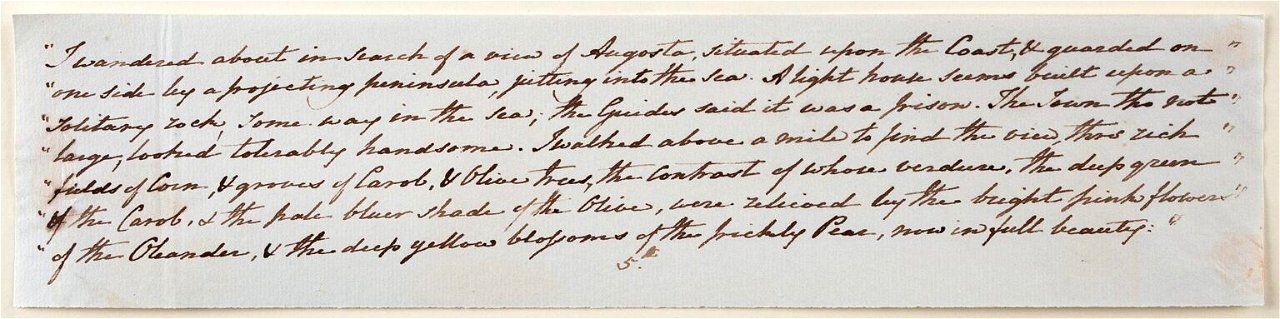 "I wandered about in search of a view of Augosta, situated upon the Coast, & guarded on "
"one side by a projecting peninsula, jutting into the sea. A light house seems built upon a "
"solitary rock, some way in the sea; the Guides said it was a prison. The Town tho not "
"large, looked tolerably handsome. I walked above a mile to find the view, thro rich "
"fields of Corn, & groves of Carob, & Olive trees, the contrast of whose verdure, the deep green "
"of the Carob, & the pale bluer shade of the Olive, were relieved by the bright pink flowers "
"of the Oleander, & the deep yellow blossoms of the prickly Pear, now in full beauty: "
5.